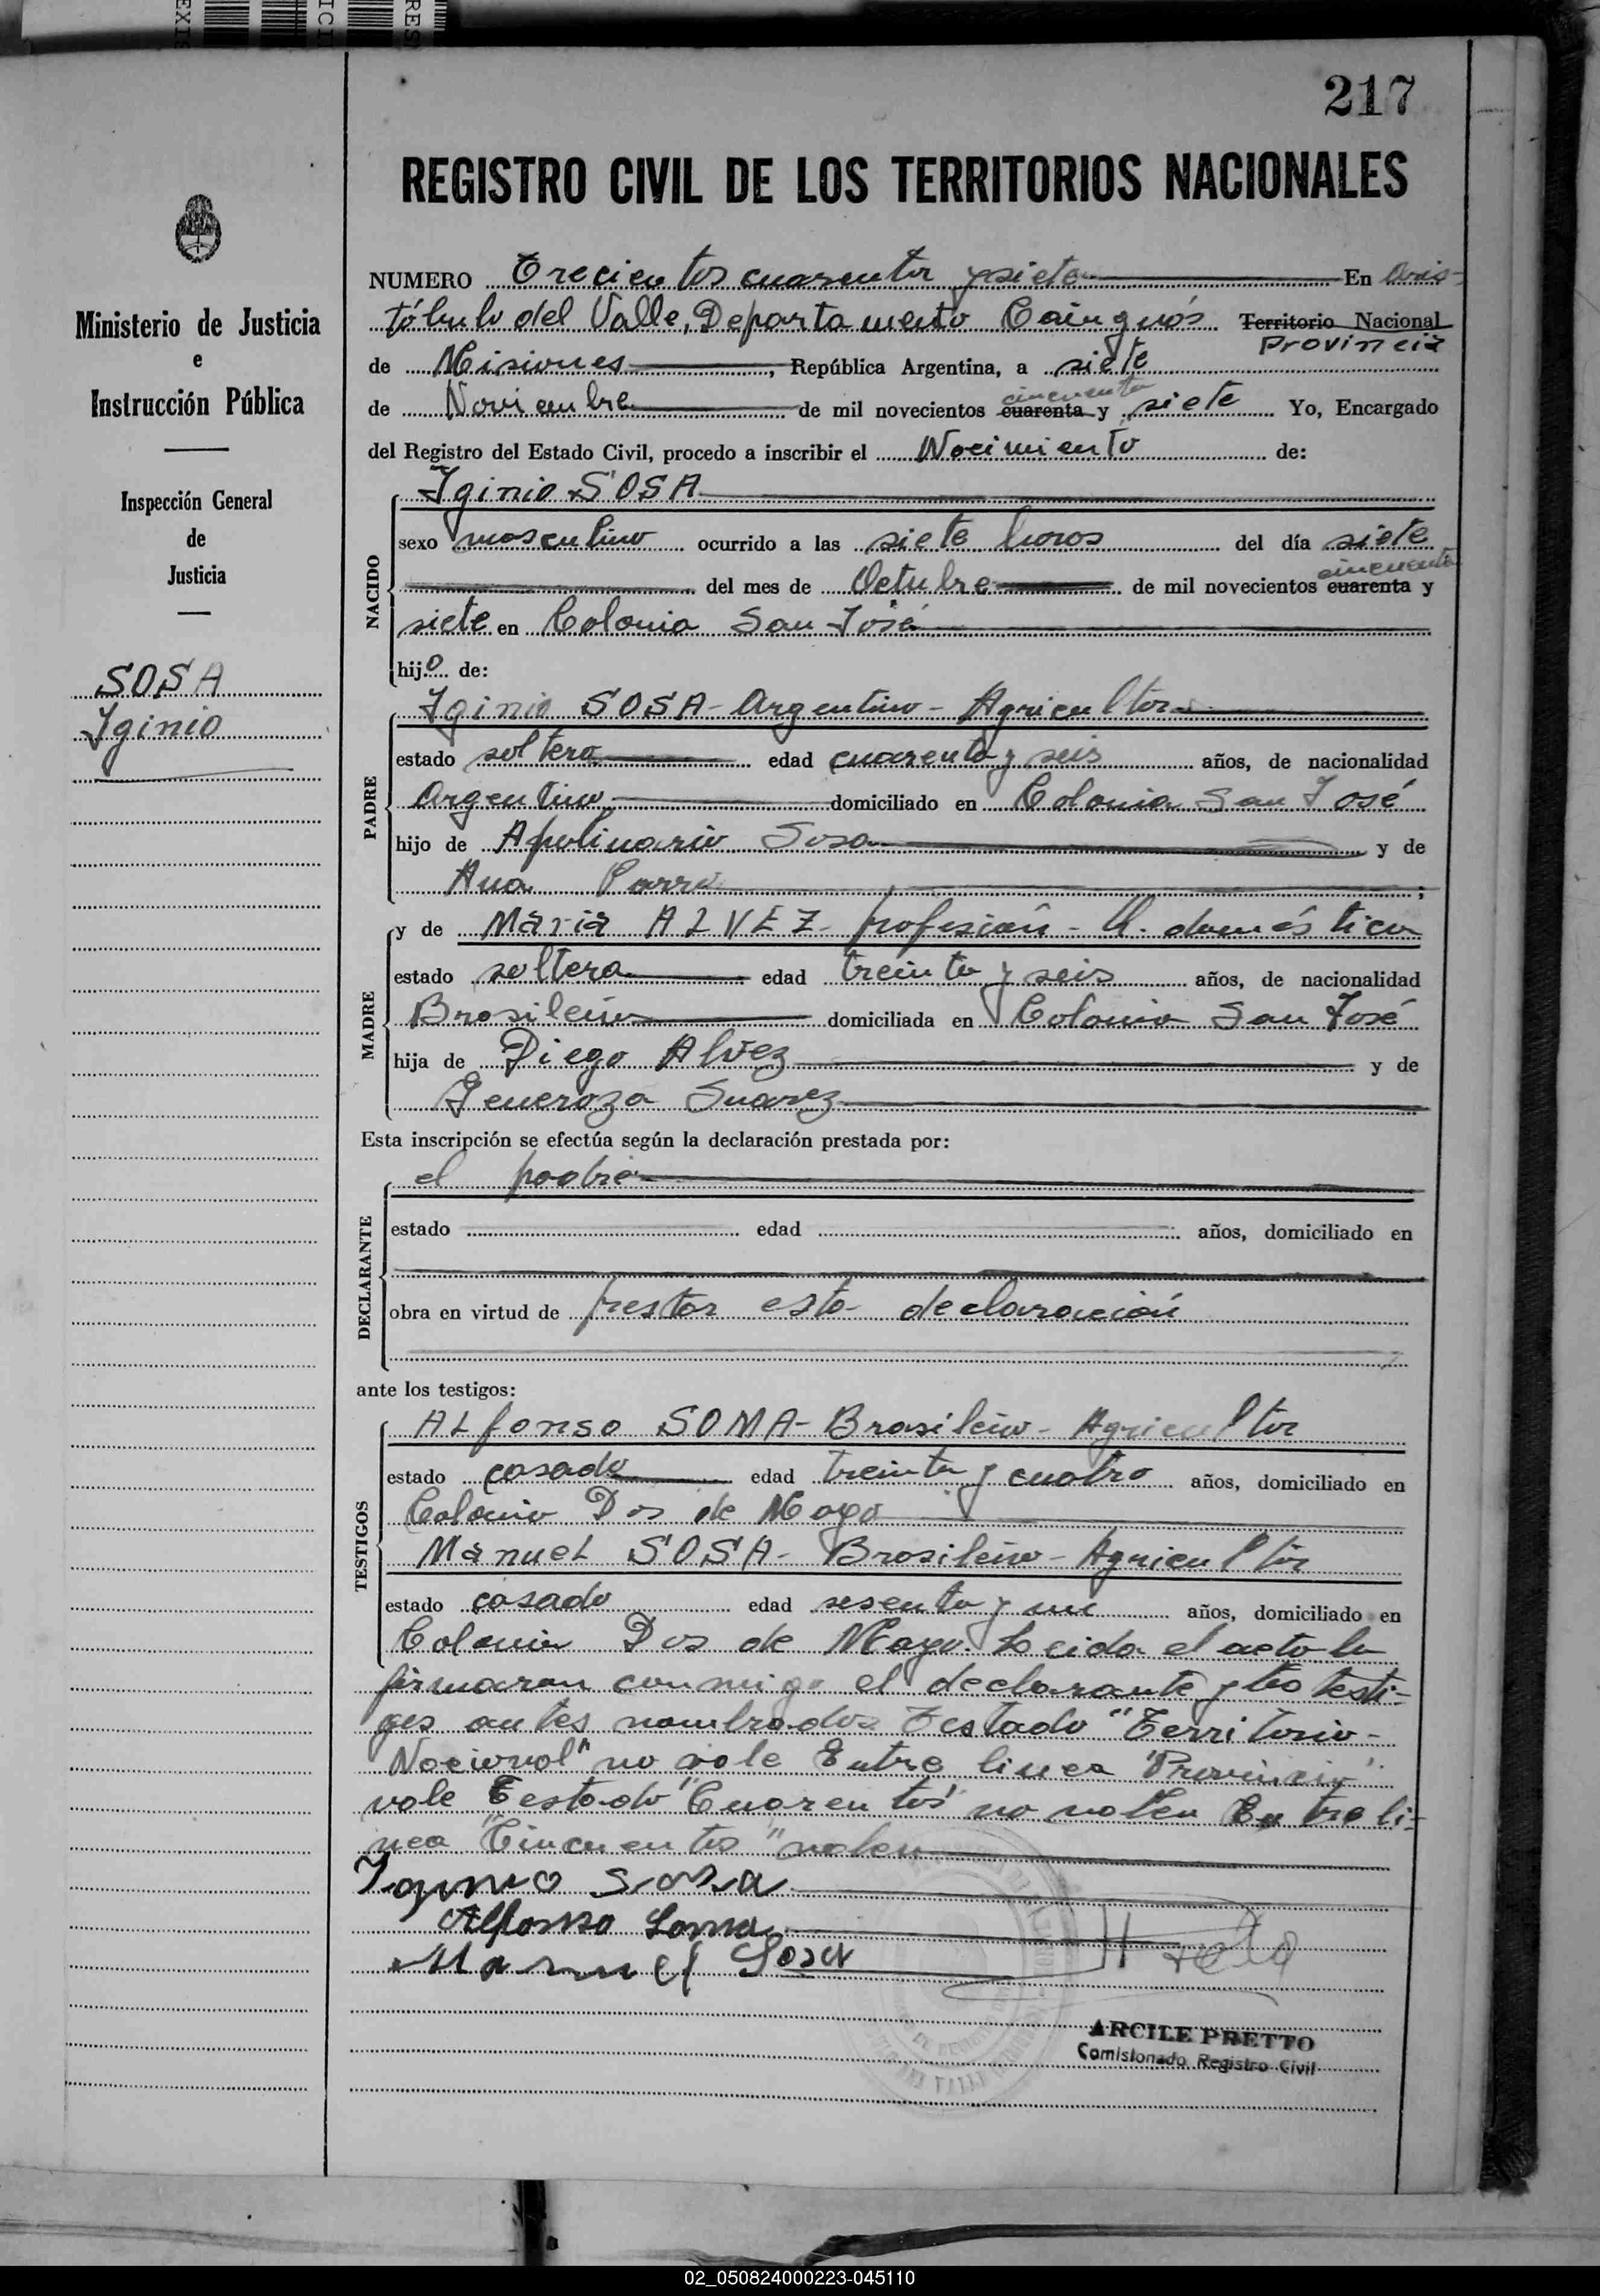 217
REGISTRO CIVIL DE LOS TERRITORIOS NACIONALES
Ministerio de Justicia
e
Instrucción Pública
Inspección General
de
Justicia
SOSA
Iginio
NUMERO Trecientos cuarenta y siete En Aris-
tóbulo del Valle, Departamento Cainguás Territorio Nacional
Provincia
de Misiones, República Argentina, a siete
cincuenta
de Noviembre de mil novecientos cuarenta y siete Yo, Encargado
del Registro del Estado Civil, procedo a inscribir el Nacimiento de:
NACIDO
Iginio SOSA
sexo masculino ocurrido a las siete horas del día siete
cincuenta
del mes de Octubre de mil novecientos cuarenta y
siete en Colonia San José
hijo de:
PADRE
Iginio SOSA - Argentino - Agricultor
estado soltero edad cuarenta y seis años, de nacionalidad
Argentino domiciliado en Colonia San José
hijo de Apolinario Sosa y de
Ana Parra;
MADRE
y de Maria ALVEZ - profesión - Q. doméstico
estado soltera edad treinta y seis años, de nacionalidad
Brasileña domiciliada en Colonia San José
hija de Diego Alvez y de
Generoza Suarez
Esta inscripción se efectúa según la declaración prestada por:
DECLARANTE
el padre
estado edad años, domiciliado en
obra en virtud de prestar esta declaración
ante los testigos:
TESTIGOS
ALfonso SOMA - Brasileño - Agricultor
estado casado edad treinta y cuatro años, domiciliado en
Colonia Dos de Mayo
ManueL SOSA - Brasileño - Agricultor
estado casado edad sesenta y un años, domiciliado en
Colonia Dos de Mayo. Leida el acta la
firmaran conmigo el declarante y los testi-
gos antes nombrados Testado "Territorio -
Nacional" no vale Entre linea "Provincia"
vale Testado "Cuarentas" no valen Entre li-
nea "Cincuentas" valen
Iginio Sosa
Alfonso Soma
Manuel Sosa
ARCILE PRETTO
Comisionado Registro Civil
02_050824000223-045110